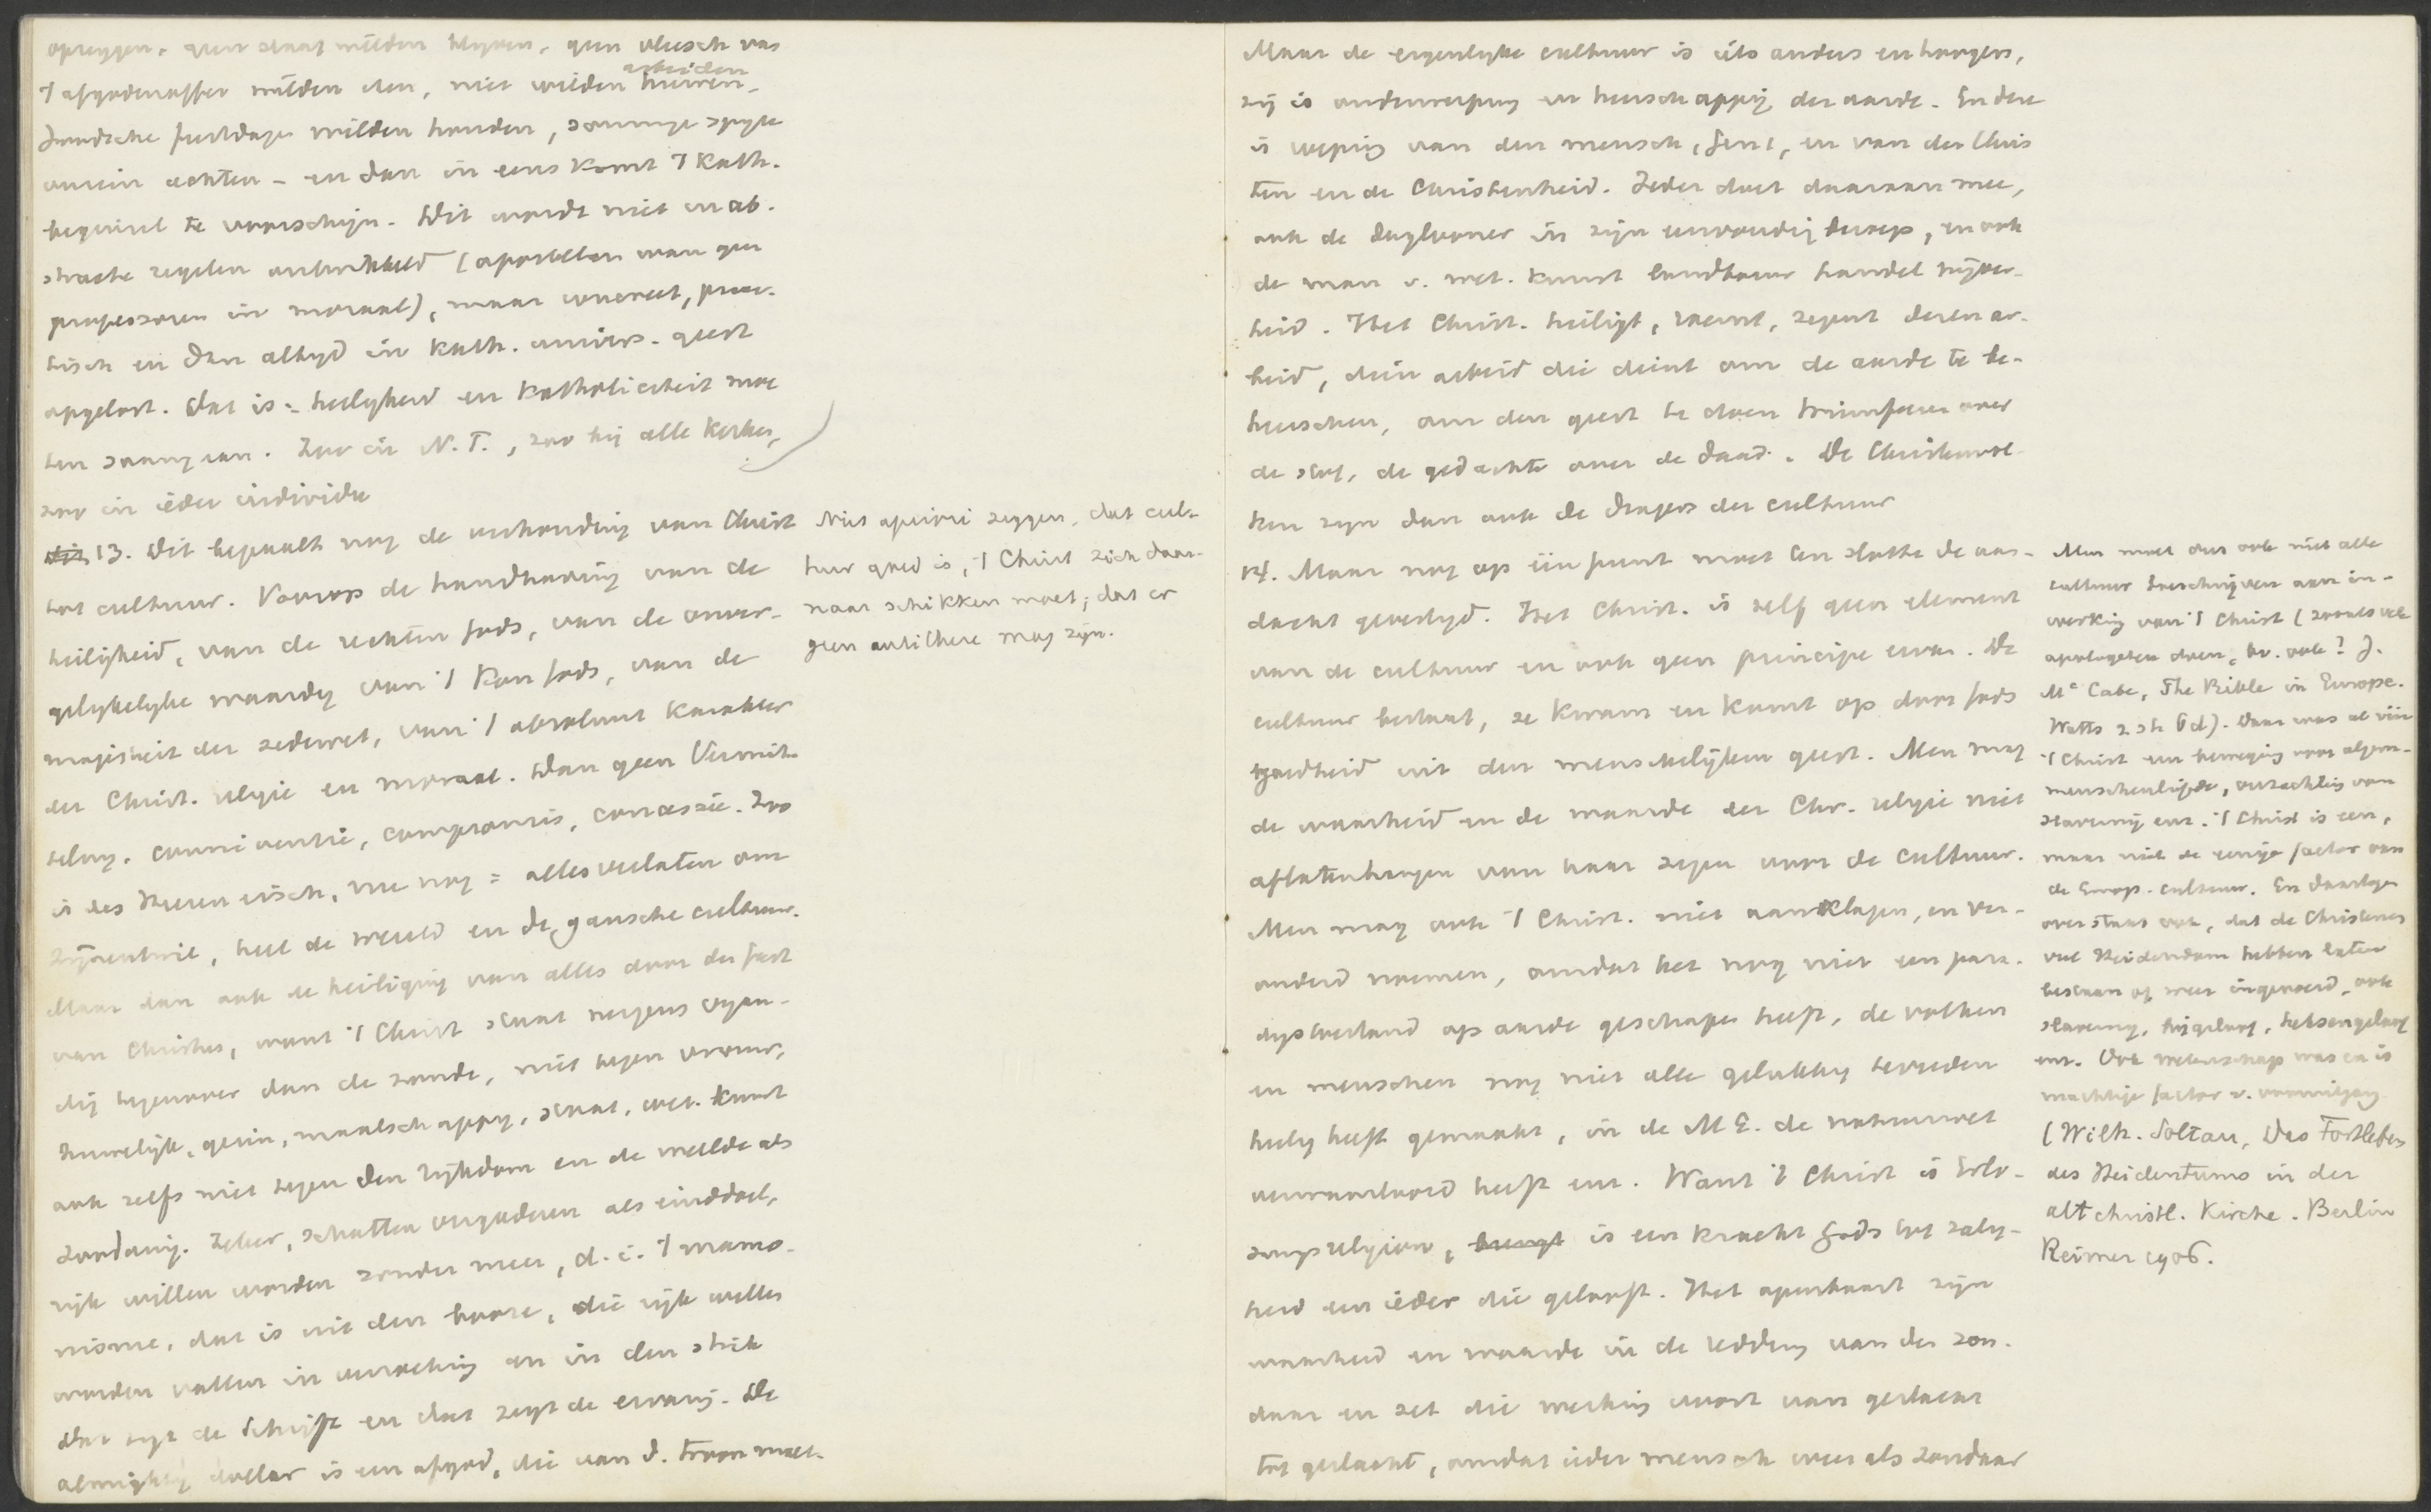 opzeggen, geen staat wilden blijven, geen vleesch van
't afgodenoffer wilden eten, niet wilden huwen,
arbeiden
Joodsche feestdagen wilden houden, sommige spijze
onrein achten - en dan in eens komt 't Kath.
beginsel te voorschijn. Dit wordt niet in ab-
stracte regelen ontwikkeld (apostelen waren geen
professoren in moraal), maar concreet, prac-
tisch en dan altijd in Kath. univers. geest
opgelost. Dat is: heiligheid en Katholiciteit moe
ten saamgaan. Zoo in N.T., zoo bij alle Kerken,
zoo in ieder individu
13. Dit bepaalt nog de verhouding van Christ
tot cultuur. Voorop de handhaving van de
heiligheid, van de rechten Gods, van de onver-
gelijkelijke waardij van 't Kon. Gods, van de
majesteit der zedewet, van 't absoluut karakter
der Christ. religie en moraal. Dan geen Vermit-
teling, conniventie, compromis, concessie. Zoo
is des Heeren eisch, nu nog = alles verlaten om
Zijnentwil, heel de wereld en de gansche cultuur.
Maar dan ook de heiliging van alles door den geest
van Christus, want 't Christ staat nergens vijan-
dig tegenover dan de zonde, niet tegen vrouw,
huwelijk, gezin, maatschappij, staat, wet. kunst
ook zelfs niet tegen den rijkdom en de weelde als
zoodanig. Zeker, schatten vergaderen als einddoel,
rijk willen worden zonder meer, d.i. 't mammo-
nisme, dat is uit den booze, die rijk willen
worden vallen in verzoeking en in den strik
Dat zegt de Schrift en dat zegt de ervaring. De
almighty dollar is een afgod, die van d. troon moet.
Niet apriori zeggen, dat cul-
tuur goed is, 't Christ zich daar-
naar schikken moet; dat er
geen antithese mag zijn.
Maar de eigenlijke cultuur is iets anders en hoogers,
zij is onderwerping en heerschappij der aarde. En deze
is roeping van den mensch, Gen 1, en van den Chris
ten en de Christenheid. Ieder doet daaraan mee,
ook de daglooner in zijn eenvoudig beroep, en ook
de man v. wet. kunst landbouw handel nijver-
heid. Het Christ. heiligt, zegent deren ar-
beid, dien arbeid die dient om de aarde te be-
heerschen, om den geest te doen triumfeeren over
de stof, de gedachte over de daad. De Christenvol-
ken zijn dan ook de dragers der cultuur
14. Maar nog op één punt moet ten slotte de aan-
dacht gevestigd. Het Christ. is zelf geen element
van de cultuur en ook geen principe ervan. De
cultuur bestaat, ze kwam en komt op door Gods
goedheid uit den menschelijken geest. Men mag
de waarheid en de waarde der Chr. religie niet
aflaten hangen van haar zegen voor de cultuur.
Men mag ook 't Christ. niet aanklagen, en ver-
ouderd noemen, omdat het nog niet een para-
dijstoestand op aarde geschapen heeft, de volken
en menschen nog niet alle gelukkig tevreden
heilig heeft gemaakt, in de ME. de natuurwet
verwaarloosd heeft enz. Want 't Christ is Erlö-
sungsreligion, is een kracht Gods tot zalig-
heid een ieder die gelooft. Het openbaart zijn
waarheid en waarde in de redding van den zon-
daar en zet die werking voort van geslacht
tot geslacht, omdat ieder mensch weer als zondaar
Men moet dus ook niet alle
cultuur toeschrijven aan in-
werking van 't Christ (zooals vele
apologeten doen, bv. ook?).
Mc Cabe, The Bible in Europe.
Watts 2 sh 6 d). Daar was al vóór
't Christ een beweging voor algem-
menschenliefde, verzachting van
slavernij enz. 't Christ is een,
maar niet de eenige factor van
de Europ. cultuur. En daartegen
over staat ook, dat de Christenen
veel Heidendom hebben laten
bestaan of weer ingevoerd, ook
slavernij, bijgeloof, heksengeloof
enz. Ook wetenschap was en is
machtige factor v. vooruitgang
(Wilh. Soltau, Das Fortleben
des Heidentums in der
altchristl. Kirche. Berlin
Reimer 1906.